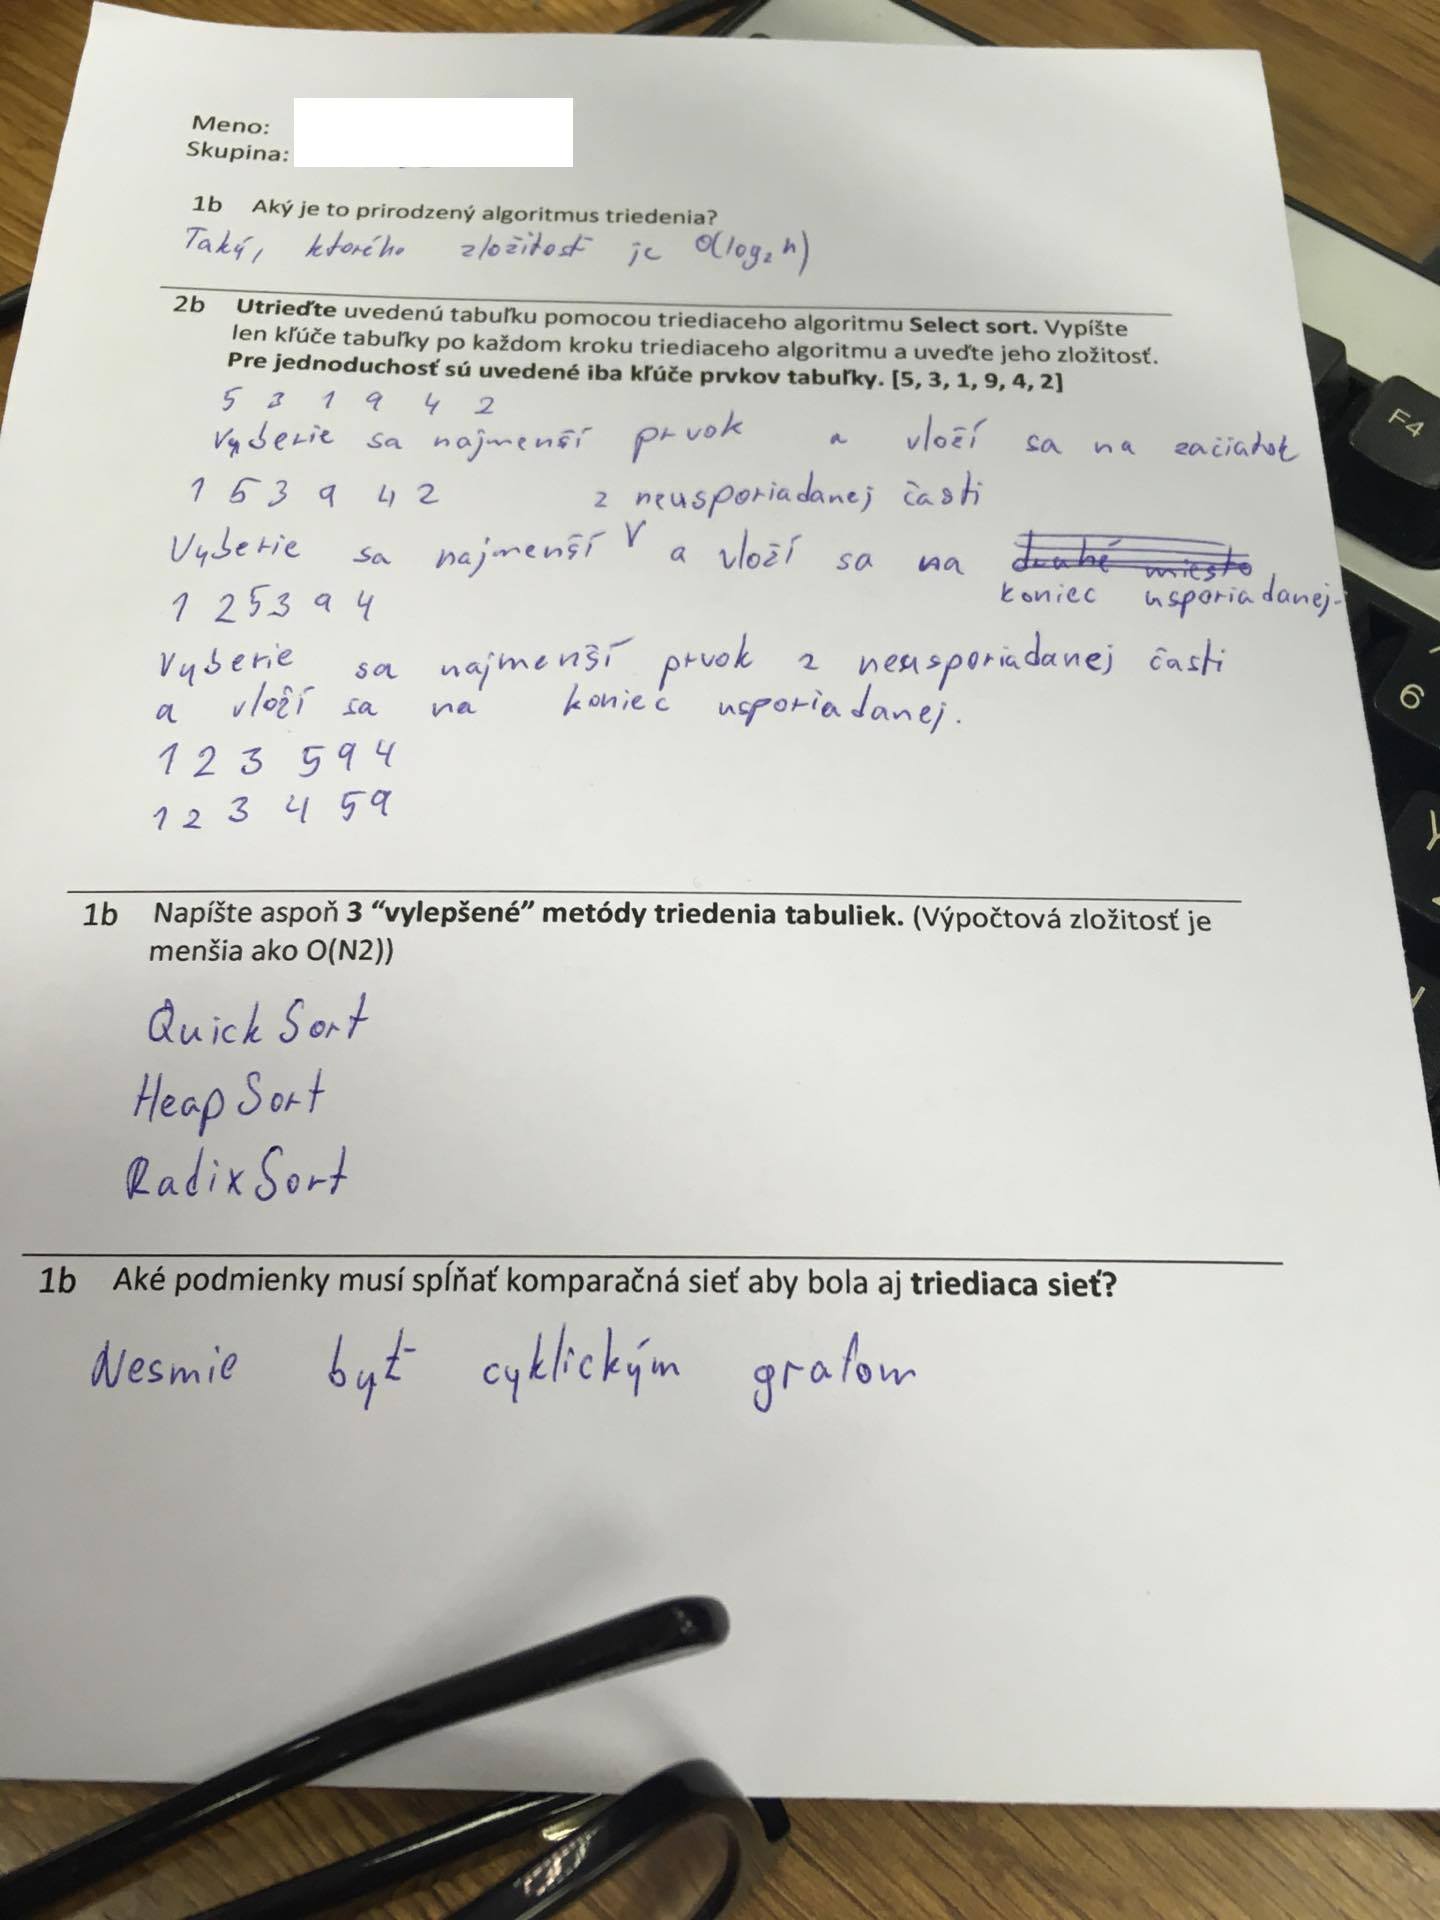 Meno:
Skupina:
1b Aký je to prirodzený algoritmus triedenia?
Taký, ktorého zložitosť je O(log₂ n)
2b Utrieďte uvedenú tabuľku pomocou triediaceho algoritmu Select sort. Vypíšte
len kľúče tabuľky po každom kroku triediaceho algoritmu a uveďte jeho zložitosť.
Pre jednoduchosť sú uvedené iba kľúče prvkov tabuľky. [5, 3, 1, 9, 4, 2]
5 3 1 9 4 2
Vyberie sa najmenší prvok a vloží sa na začiatok
1 5 3 9 4 2 z neusporiadanej časti
Vyberie sa najmenší V a vloží sa na druhé miesto
koniec usporiadanej.
1 2 5 3 9 4
Vyberie sa najmenší prvok z neusporiadanej časti
a vloží sa na koniec usporiadanej.
1 2 3 5 9 4
1 2 3 4 5 9
1b Napíšte aspoň 3 “vylepšené” metódy triedenia tabuliek. (Výpočtová zložitosť je
menšia ako O(N2))
QuickSort
HeapSort
RadixSort
1b Aké podmienky musí spĺňať komparačná sieť aby bola aj triediaca sieť?
Nesmie byť cyklickým grafom
F4
6
Y